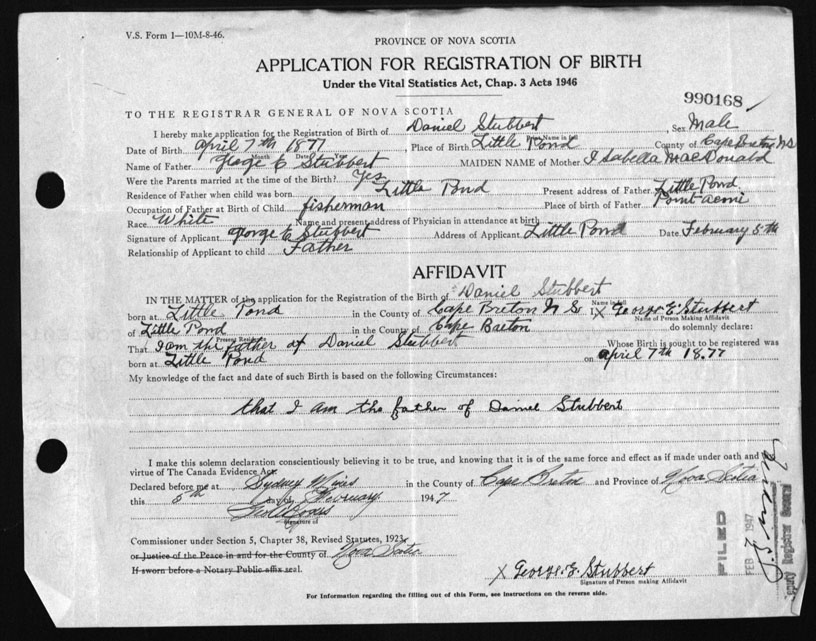 V.S. Form 1—10M-8-46.
PROVINCE OF NOVA SCOTIA
APPLICATION FOR REGISTRATION OF BIRTH
Under the Vital Statistics Act, Chap. 3 Acts 1946
990168
TO THE REGISTRAR GENERAL OF NOVA SCOTIA
I hereby make application for the Registration of Birth of Daniel Stubbert Sex Male
Print Name in full
Date of Birth April 7th 1877, Place of Birth Little Pond County of Cape Breton NS
Month Date Year
Name of Father George E Stubbert MAIDEN NAME of Mother Isabella MacDonald
Were the Parents married at the time of the Birth? Yes
Residence of Father when child was born Little Pond Present address of Father Little Pond
Occupation of Father at Birth of Child fisherman Place of birth of Father Point Aconi
Race White Name and present address of Physician in attendance at birth
Signature of Applicant George E Stubbert Address of Applicant Little Pond Date February 5th
Relationship of Applicant to child Father
AFFIDAVIT
IN THE MATTER of the application for the Registration of the Birth of Daniel Stubbert
Name in full
born at Little Pond in the County of Cape Breton N S I X George E Stubbert
Name of Person Making Affidavit
of Little Pond in the County of Cape Breton do solemnly declare:
Present Residence
That I am the father of Daniel Stubbert Whose Birth is sought to be registered was
born at Little Pond on April 7th 1877
My knowledge of the fact and date of such Birth is based on the following Circumstances:
that I am the father of Daniel Stubbert
I make this solemn declaration conscientiously believing it to be true, and knowing that it is of the same force and effect as if made under oath and by
virtue of The Canada Evidence Act.
Declared before me at Sydney Mines in the County of Cape Breton and Province of Nova Scotia
this 5th day of February 1947
Signature of
Commissioner under Section 5, Chapter 38, Revised Statutes, 1923,
or Justice of the Peace in and for the County of Nova Scotia
If sworn before a Notary Public affix seal.
X George E Stubbert
Signature of Person making Affidavit
For Information regarding the filling out of this Form, see instructions on the reverse side.
FILED
FEB 1947
Deputy Registrar General